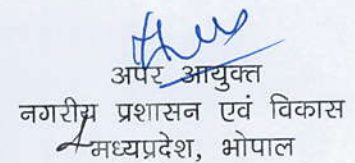 अपर आयुक्त
नगरीय प्रशासन एवं विकास
मध्यप्रदेश, भोपाल